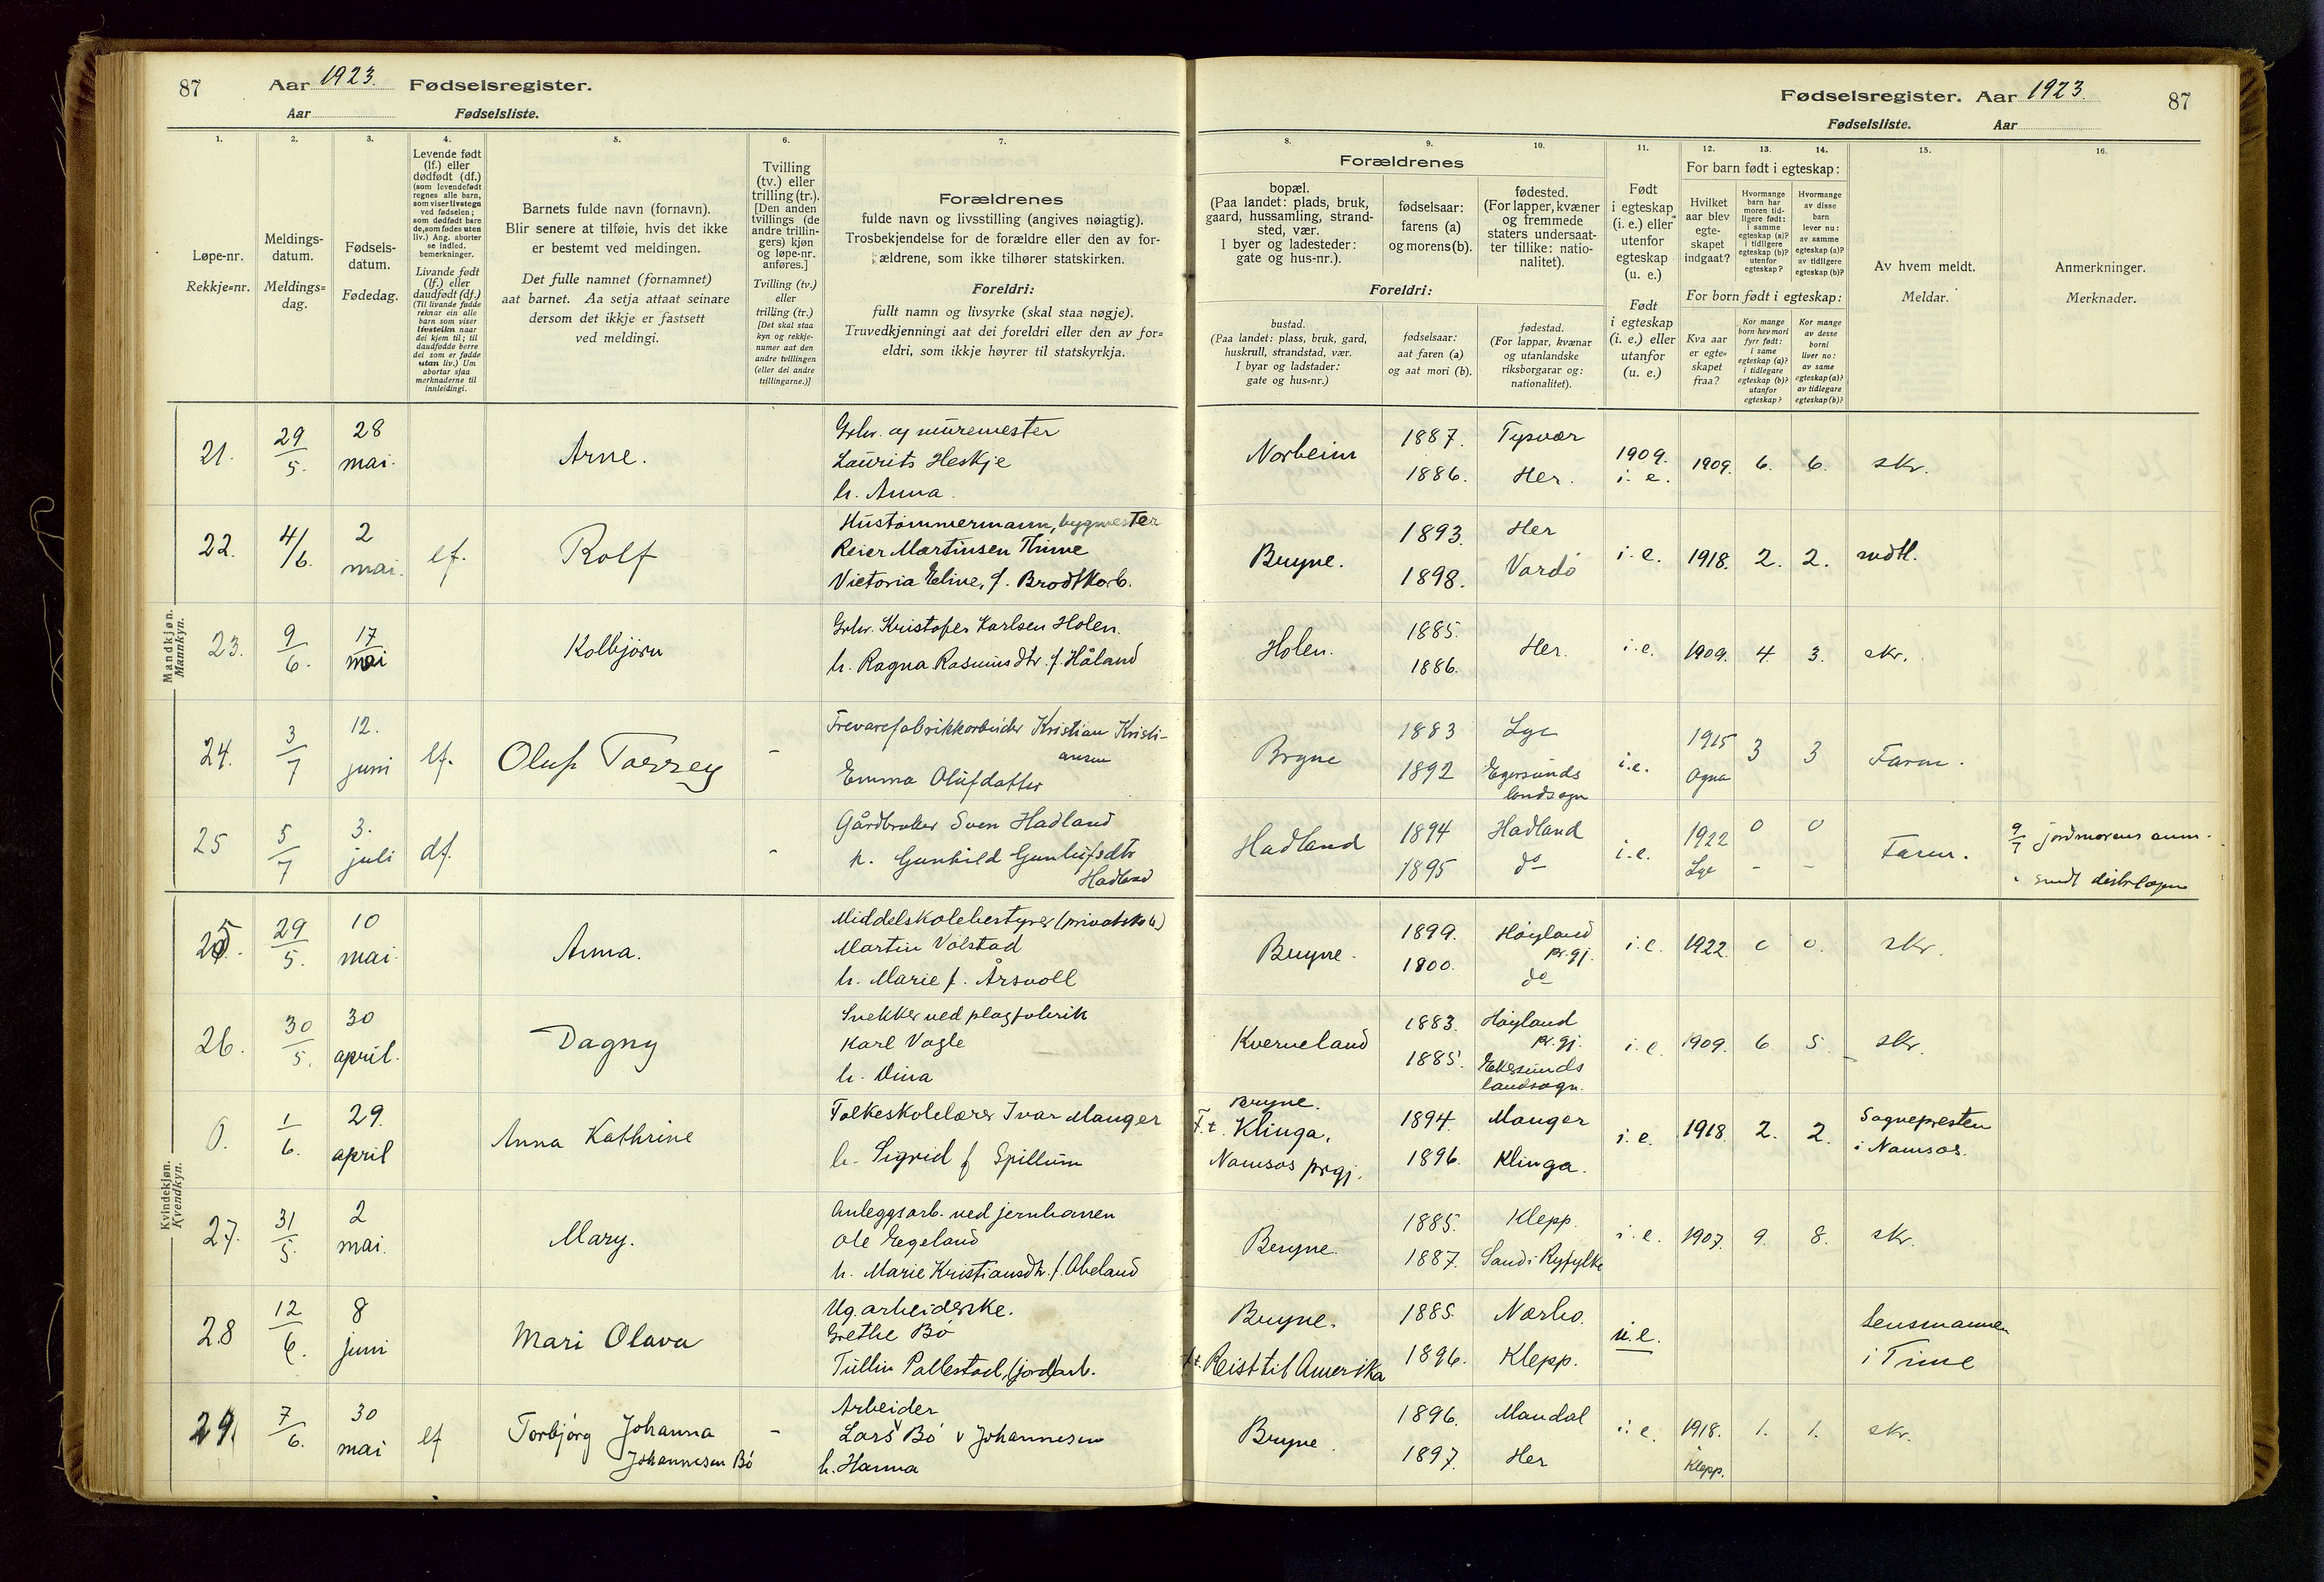 87 Aar 1923. Fødselsregister.
Aar Fødselsliste.
Fødselsregister. Aar 1923. 87
Fødselsliste. Aar
1. 2. 3. 4. 5. 6. 7.
Løpe-nr.
Rekkje=nr.
Meldings-
datum.
Meldings=
dag.
Fødsels-
datum.
Fødedag.
Levende født
(lf.) eller
dødfødt (df.)
(som levendefødt
regnes alle barn,
som viser livstegn
ved fødselen;
som dødfødt bare
de, som fødes uten
liv.) Ang. aborter
se indled.
bemerkninger.
Livande født
(lf.) eller
daudfødt (df.)
(Til livande fødde
reknar ein alle
barn som viser
livsteikn naar
dei kjem til; til
daudfødde berre
dei som er fødde
utan liv.) Um
abortar sjaa
merknaderne til
innleidingi.
Barnets fulde navn (fornavn).
Blir senere at tilføie, hvis det ikke
er bestemt ved meldingen.
Det fulle namnet (fornamnet)
aat barnet. Aa setja attaat seinare
dersom det ikkje er fastsett
ved meldingi.
Tvilling
(tv.) eller
trilling (tr.).
[Den anden
tvillings (de
andre trillin-
gers) kjøn
og løpe-nr.
anføres.]
Tvilling (tv.)
eller
trilling (tr.)
[Det skal staa
kyn og rekkje-
numer aat den
andre tvillingen
(eller dei andre
trillingarne.)]
Forældrenes
fulde navn og livsstilling (angives nøiagtig).
Trosbekjendelse for de forældre eller den av for-
ældrene, som ikke tilhører statskirken.
Foreldri:
fullt namn og livsyrke (skal staa nøgje).
Truvedkjenningi aat dei foreldri eller den av for=
eldri, som ikkje høyrer til statskyrkja.
8. 9. 10. 11. 12. 13. 14. 15. 16.
Forældrenes
bopæl.
(Paa landet: plads, bruk,
gaard, hussamling, strand-
sted, vær.
I byer og ladesteder:
gate og hus-nr.).
fødselsaar:
farens (a)
og morens (b).
fødested.
(For lapper, kvæner
og fremmede
staters undersaat-
ter tillike: natio-
nalitet).
Foreldri:
bustad.
(Paa landet: plass, bruk, gard,
huskrull, strandstad, vær.
I byar og ladstader:
gate og hus=nr.)
fødselsaar:
aat faren (a)
og aat mori (b).
fødestad.
(For lappar, kvænar
og utanlandske
riksborgarar og:
nationalitet).
Født
i egteskap
(i. e.) eller
utenfor
egteskap
(u. e.)
Født
i egteskap
(i. e.) eller
utanfor
(u. e.)
For barn født i egteskap:
Hvilket
aar blev
egte-
skapet
indgaat?
Hvormange
barn har
moren tid-
ligere født:
i samme
egteskap (a)?
i tidligere
egteskap (b)?
utenfor
egteskap?
Hvormange
av disse
barn
lever nu:
av samme
egteskap (a)?
av tidligere
egteskap (b)?
For born født i egteskap:
Kva aar
er egte=
skapet
fraa?
Kor mange
born hev mori
fyrr født:
i same
egteskap (a)?
i tidlegare
egteskap (b)?
utanfor
egteskap?
Kor mange
av desse
borni
liver no:
av same
egteskap (a)?
av tidlegare
egteskap (b)?
Av hvem meldt.
Meldar.
Anmerkninger.
Merknader.
Mandkjøn.
Mannkyn.
21. 29/5. 28 mai. Arne.
Grbr. og muremester
Laurits Heskje
h. Anna.
Norheim 1887. 1886. Tysvær Her. 1909. i. e. 1909. 6. 6. skr.
22. 4/6. 2 mai. lf. Rolf
Hustømmermann, bygmester
Reier Martinsen Thime
Victoria Eline, f. Brodtkorb.
Bryne. 1893. 1898. Her Vardø i. e. 1918. 2. 2. mdtl.
23. 9/6. 17 mai Kolbjørn
Grbr. Kristofer Karlsen Holen.
h. Ragna Rasmusdtr. f. Håland
Holen. 1885. 1886. Her. i. e. 1909. 4. 3. skr.
24. 3/7 12. juni lf. Oluf Torrey -
Trevarefabrikkarbeider Kristian Kristi-
ansen
Emma Olufdatter
Bryne 1883 1892 Lye Egersunds landsogn i.e. 1915 Ogna 3 3 Faren.
25 5/7 3. juli df. -
Gårdbruker Sven Hadland
h. Gunhild Gunlufsdtr
Hadland
Hadland 1894 1895 Hadland do i.e. 1922 Lye 0 0 - - Faren. 9/7 jordmorens anm.
sendt distr.lægen
Kvindekjøn.
Kvendkyn.
25. 29/5. 10 mai. Anna.
Middelskolebestyrer (privatskole)
Martin Vølstad
h. Marie f. Årsvoll
Bryne. 1899. 1900. Høyland pr.gj. do i. e. 1922. 0 0. skr.
26. 30/5. 30 april. Dagny
Snekker ved plogfabrik
Karl Vagle
h. Dina
Kverneland 1883. 1885. Høyland pr. gj. Ekersunds landsogn. i. e. 1909. 6. 5. skr.
0. 1/6. 29. april Anna Kathrine
Folkeskolelærer Ivar Manger
h. Sigrid f Spillum
Bryne.
F.t. Klinga,
Namsos prgj. 1894. 1896. Manger Klinga. i. e. 1918. 2. 2. Sognepresten
i Namsos.
27. 31/5. 2 mai. Mary.
Anleggsarb. ved jernbanen
Ole Egeland
h. Marie Kristiansdtr. f. Obeland
Bryne. 1885. 1887. Klepp. Sand i Ryfylke i. e. 1907. 9. 8. skr.
28 12/6. 8 juni Mari Olava
Ug. arbeiderske.
Grethe Bø
Tullin Pollestad, (jord)arb.
Bryne.
f.t. Reist til Amerika 1885. 1896. Nærbø. Klepp. u.e. Lensmannen
i Time
29. 7/6. 30 mai lf Torbjørg Johanna
Johannesen Bø -
Arbeider
Lars Bø v Johannesen
h. Hanna
Bryne. 1896. 1897. Mandal Her i. e. 1918. i Klepp. 1. 1. skr.